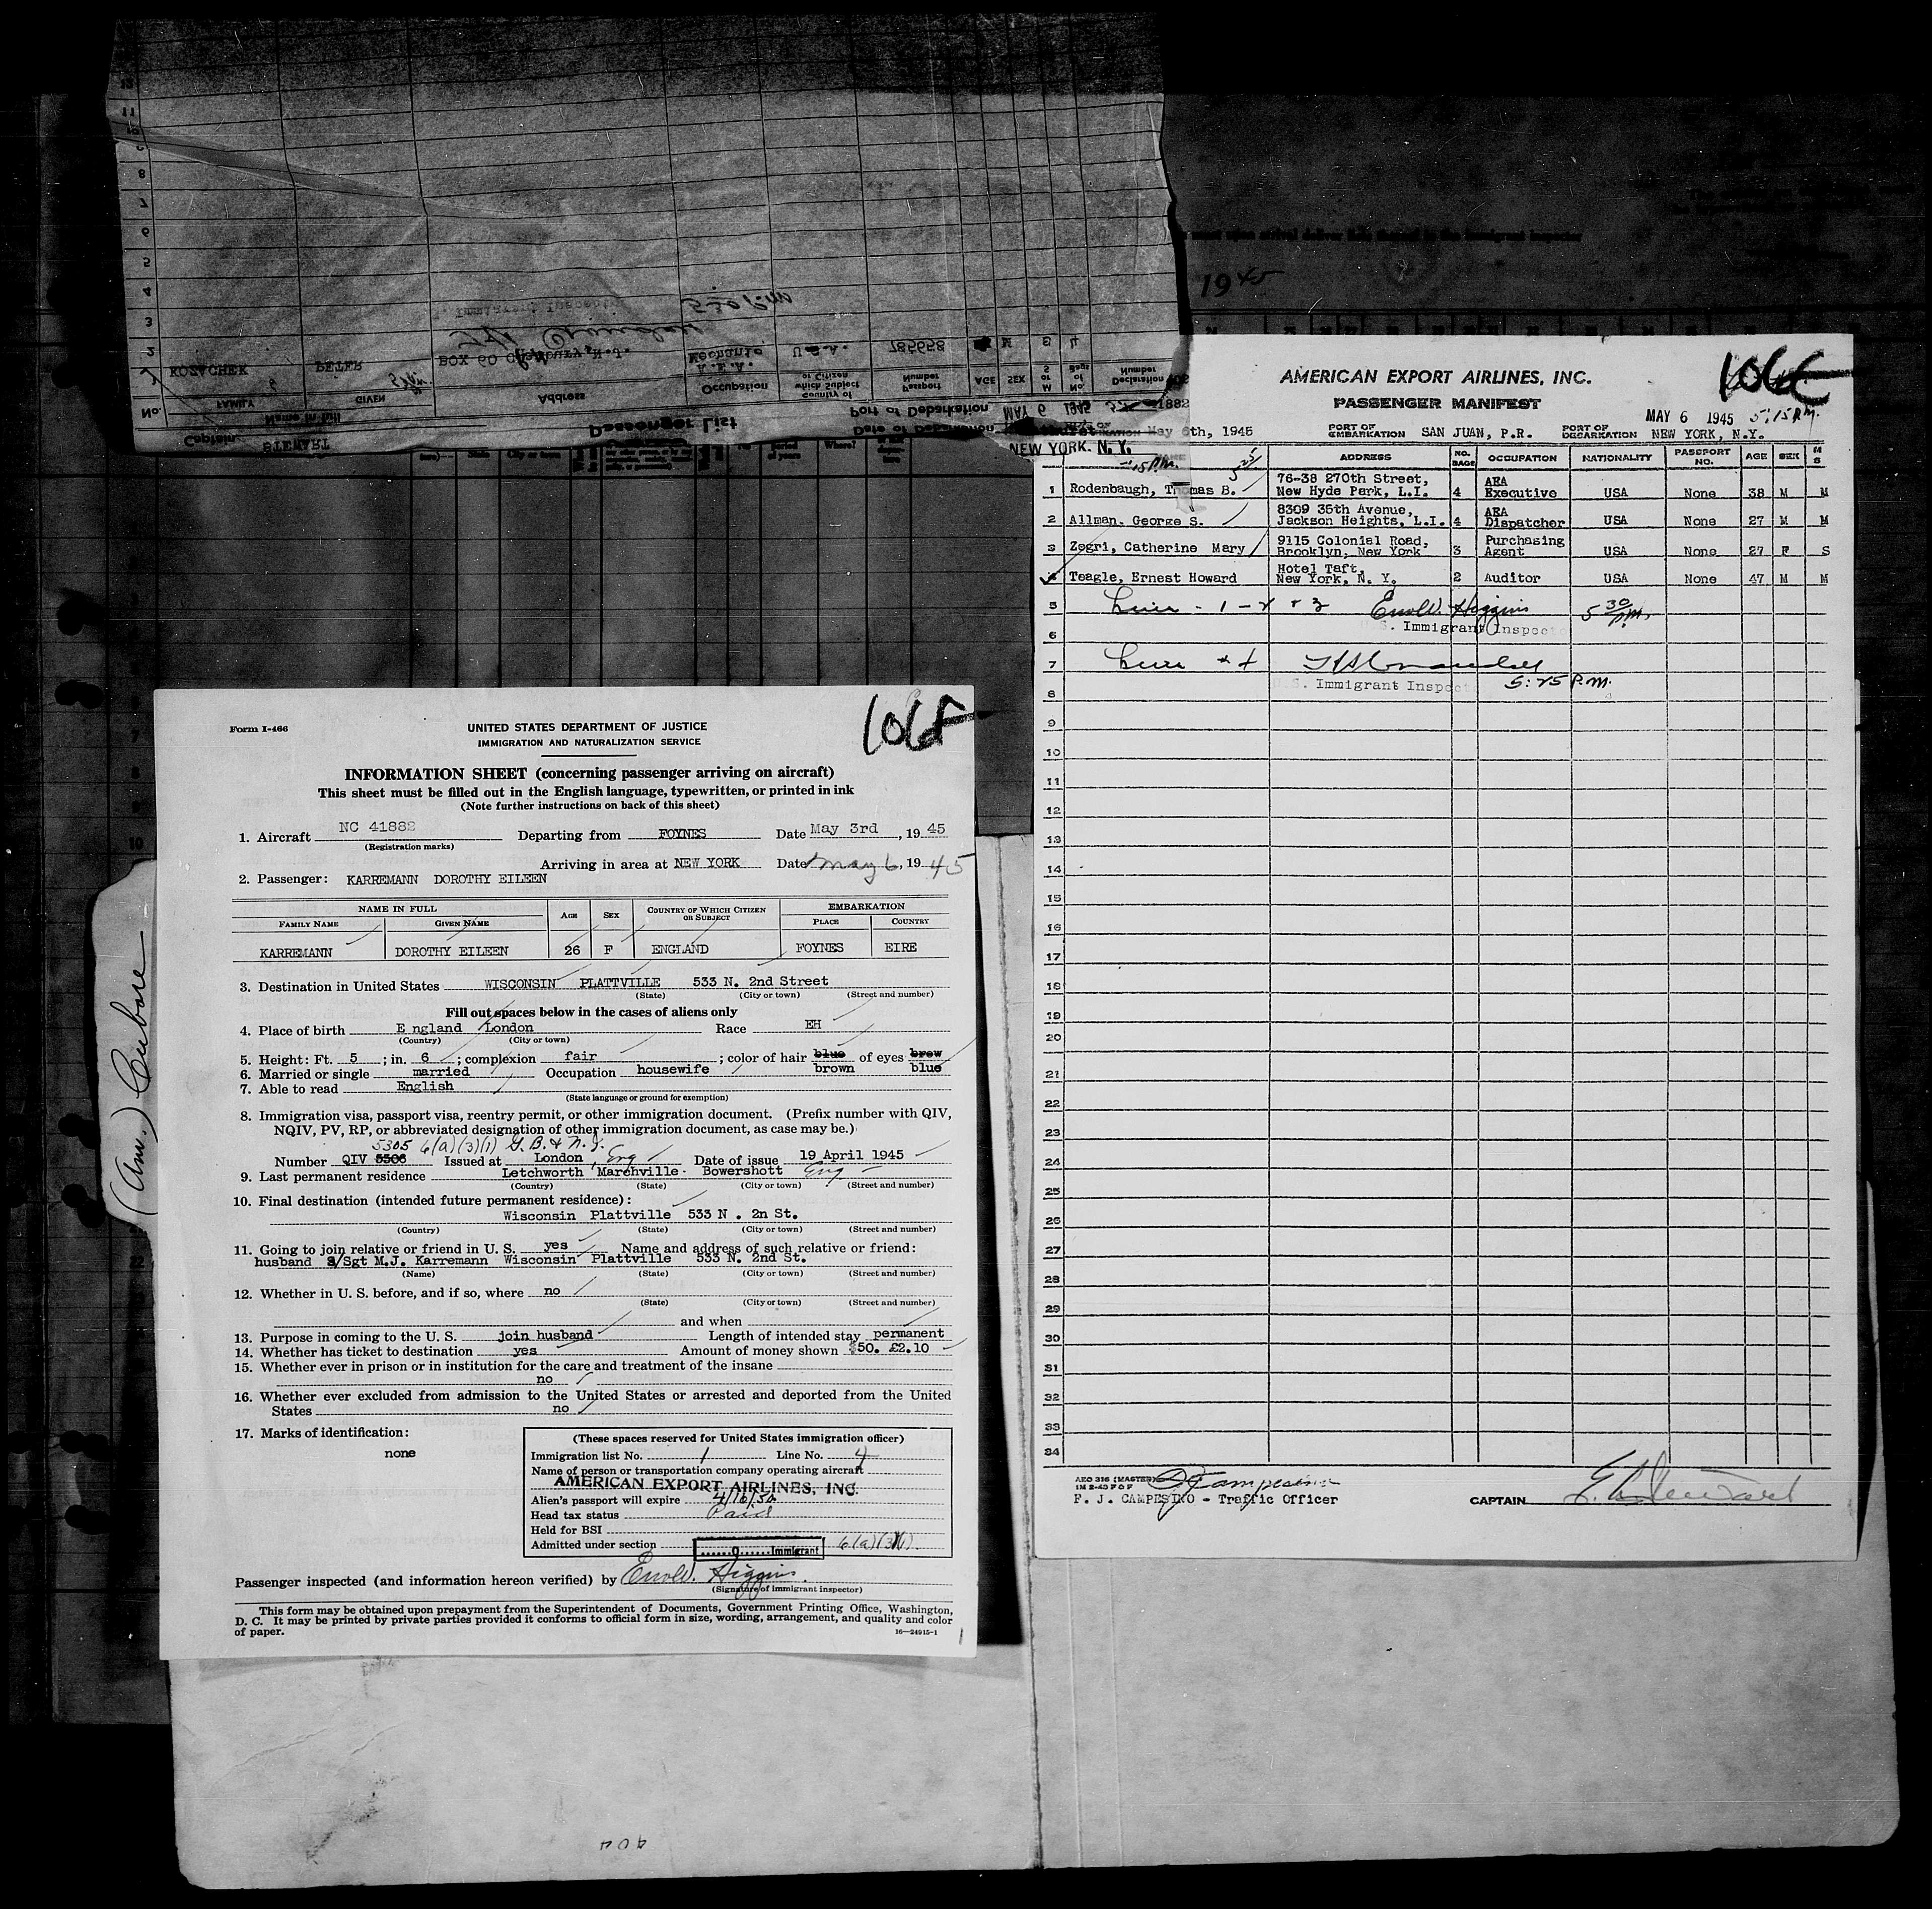 Form I-466
UNITED STATES DEPARTMENT OF JUSTICE
IMMIGRATION AND NATURALIZATION SERVICE
INFORMATION SHEET (concerning passenger arriving on aircraft)
This sheet must be filled out in the English language, typewritten, or printed in ink
(Note further instructions on back of this sheet)
1. Aircraft NC 41882 Departing from FOYNES Date May 3rd, 19 45
(Registration marks)
Arriving in area at NEW YORK Date May 6, 19 45
2. Passenger: KARREMANN DOROTHY EILEEN
NAME IN FULL AGE SEX COUNTRY OF WHICH CITIZEN OR SUBJECT EMBARKATION
FAMILY NAME GIVEN NAME PLACE COUNTRY
KARREMANN DOROTHY EILEEN 26 F ENGLAND FOYNES EIRE
3. Destination in United States WISCONSIN PLATTVILLE 533 N. 2nd Street
(State) (City or town) (Street and number)
Fill out spaces below in the cases of aliens only
4. Place of birth E ngland London Race EH
(Country) (City or town)
5. Height: Ft. 5 ; in. 6 ; complexion fair ; color of hair blue of eyes brow
6. Married or single married Occupation housewife brown blue
7. Able to read English
(State language or ground for exemption)
8. Immigration visa, passport visa, reentry permit, or other immigration document. (Prefix number with QIV,
NQIV, PV, RP, or abbreviated designation of other immigration document, as case may be.)
5305 6(a)(3)(1) G.B. & N.I.
Number QIV 5306 Issued at London, Eng Date of issue 19 April 1945
9. Last permanent residence Letchworth Marchville Bowershott Eng
(Country) (State) (City or town) (Street and number)
10. Final destination (intended future permanent residence):
Wisconsin Plattville 533 N . 2n St.
(Country) (State) (City or town) (Street and number)
11. Going to join relative or friend in U. S. yes Name and address of such relative or friend:
husband S/Sgt M.J. Karremann Wisconsin Plattville 533 N. 2nd St.
(Name) (State) (City or town) (Street and number)
12. Whether in U. S. before, and if so, where no
(State) (City or town) (Street and number)
and when
13. Purpose in coming to the U. S. join husband Length of intended stay permanent
14. Whether has ticket to destination yes Amount of money shown $50. £2.10
15. Whether ever in prison or in institution for the care and treatment of the insane
no
16. Whether ever excluded from admission to the United States or arrested and deported from the United
States no
17. Marks of identification:
none
(These spaces reserved for United States immigration officer)
Immigration list No. 1 Line No. 4
Name of person or transportation company operating aircraft
AMERICAN EXPORT AIRLINES, INC.
Alien's passport will expire 4/16/50
Head tax status Paid
Held for BSI
Admitted under section Immigrant 6(a)(3)(1)
Passenger inspected (and information hereon verified) by Higgins
(Signature of immigrant inspector)
This form may be obtained upon prepayment from the Superintendent of Documents, Government Printing Office, Washington,
D. C. It may be printed by private parties provided it conforms to official form in size, wording, arrangement, and quality and color
of paper.
16—24915-1
AMERICAN EXPORT AIRLINES, INC.
PASSENGER MANIFEST
MAY 6 1945 5:15 P.M.
May 6th, 1945 PORT OF EMBARKATION SAN JUAN, P.R. PORT OF DEBARKATION NEW YORK, N.Y.
NEW YORK. N. Y.
ADDRESS NO. BAGS OCCUPATION NATIONALITY PASSPORT NO. AGE SEX M S
1 Rodenbaugh, Thomas B. 76-38 270th Street, New Hyde Park, L.I. 4 AEA Executive USA None 38 M M
2 Allman, George S. 8309 35th Avenue, Jackson Heights, L.I. 4 AEA Dispatcher USA None 27 M M
3 Zegri, Catherine Mary 9115 Colonial Road, Brooklyn, New York 3 Purchasing Agent USA None 27 F S
4 Teagle, Ernest Howard Hotel Taft, New York, N. Y. 2 Auditor USA None 47 M M
5 Higgins 5 30 P.M.
U.S. Immigrant Inspector
6
7
U.S. Immigrant Inspector 5:25 P.M.
8
9
10
11
12
13
14
15
16
17
18
19
20
21
22
23
24
25
26
27
28
29
30
31
32
33
34
AEO 316 (MASTER)
1M 2-43 P O F
F. J. CAMPESINO - Traffic Officer
CAPTAIN
Passenger List
Captain STEWART
Port of Debarkation MAY 6 1945
Date of Debarkation
No. Name in full FAMILY GIVEN Address Occupation Country of which Subject or Citizen Passport Number AGE SEX Declaration Number
KOZACHEK PETER BOX 60 A.E.A. Mechanic U.S.A. 785658
(Am.) Cubore
1945
404